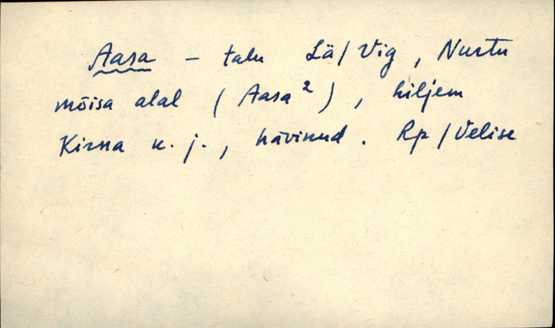 Aasa - talu Lä/Vig, Nurtu
mõisa alal (Aasa²), hiljem
Kirna k. j., hävinud. Rp/Velise